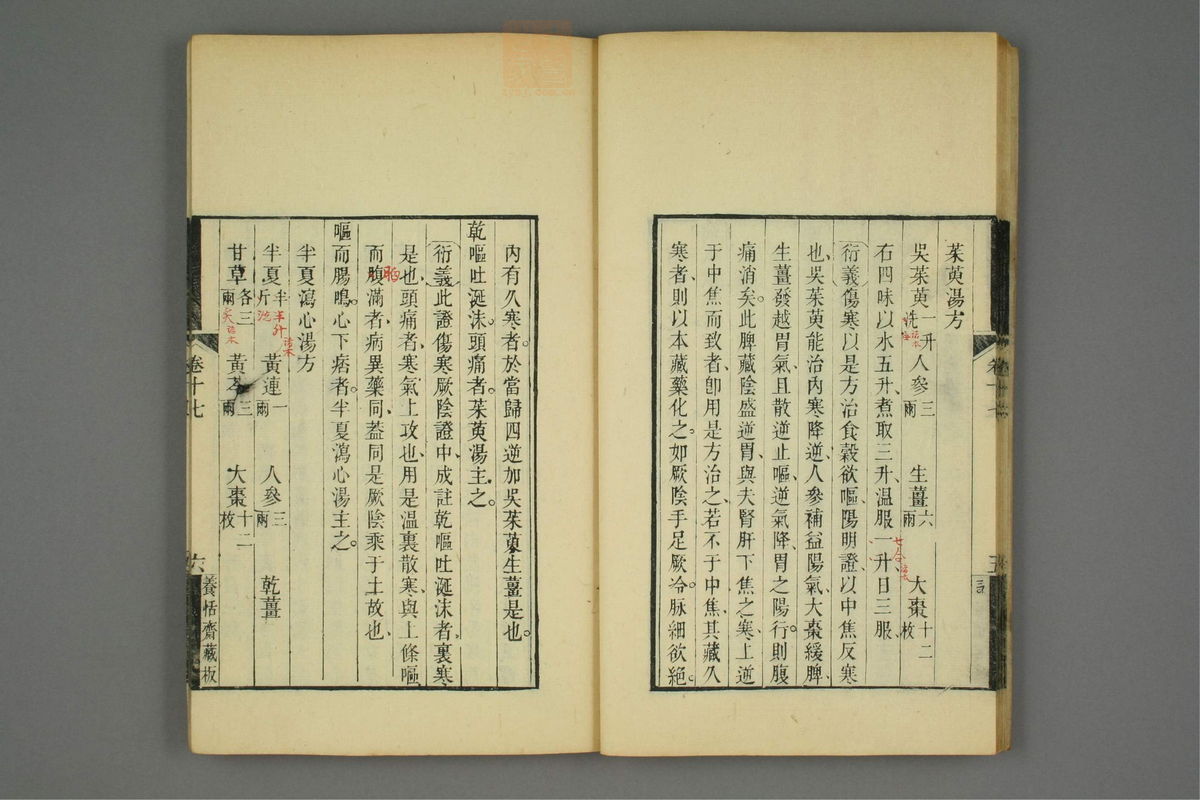 茱萸湯方
吳茱萸一升洗 人參三兩 生薑六兩 大棗十二枚
右四味以水五升煮取三升温服一升日三服
衍義傷寒以是方治食穀欲嘔陽明證以中焦反寒
也吳茱萸能治內寒降逆人參補益陽氣大棗緩脾
生薑發越胃氣且散逆止嘔逆氣降胃之陽行則腹
痛消矣此脾藏陰盛逆胃與夫腎肝下焦之寒上逆
于中焦而致者卽用是方治之若不于中焦其藏久
寒者則以本藏藥化之如厥陰手足厥冷脉細欲絕
內有久寒者於當歸四逆加吳茱萸生薑是也
乾嘔吐涎沫頭痛者茱萸湯主之
衍義此證傷寒厥陰證中成註乾嘔吐涎沫者裏寒
是也頭痛者寒氣上攻也用是温裏散寒與上條嘔
而腹滿者病異藥同葢同是厥陰乘于土故也
胸
嘔而腸鳴心下痞者半夏瀉心湯主之
半夏瀉心湯方
半夏半斤洗 黃連一兩 人參三兩 乾薑
半升
甘草各三兩 黃芩三兩 大棗十二枚
卷十七
六
養恬齋藏板
卷十七
五